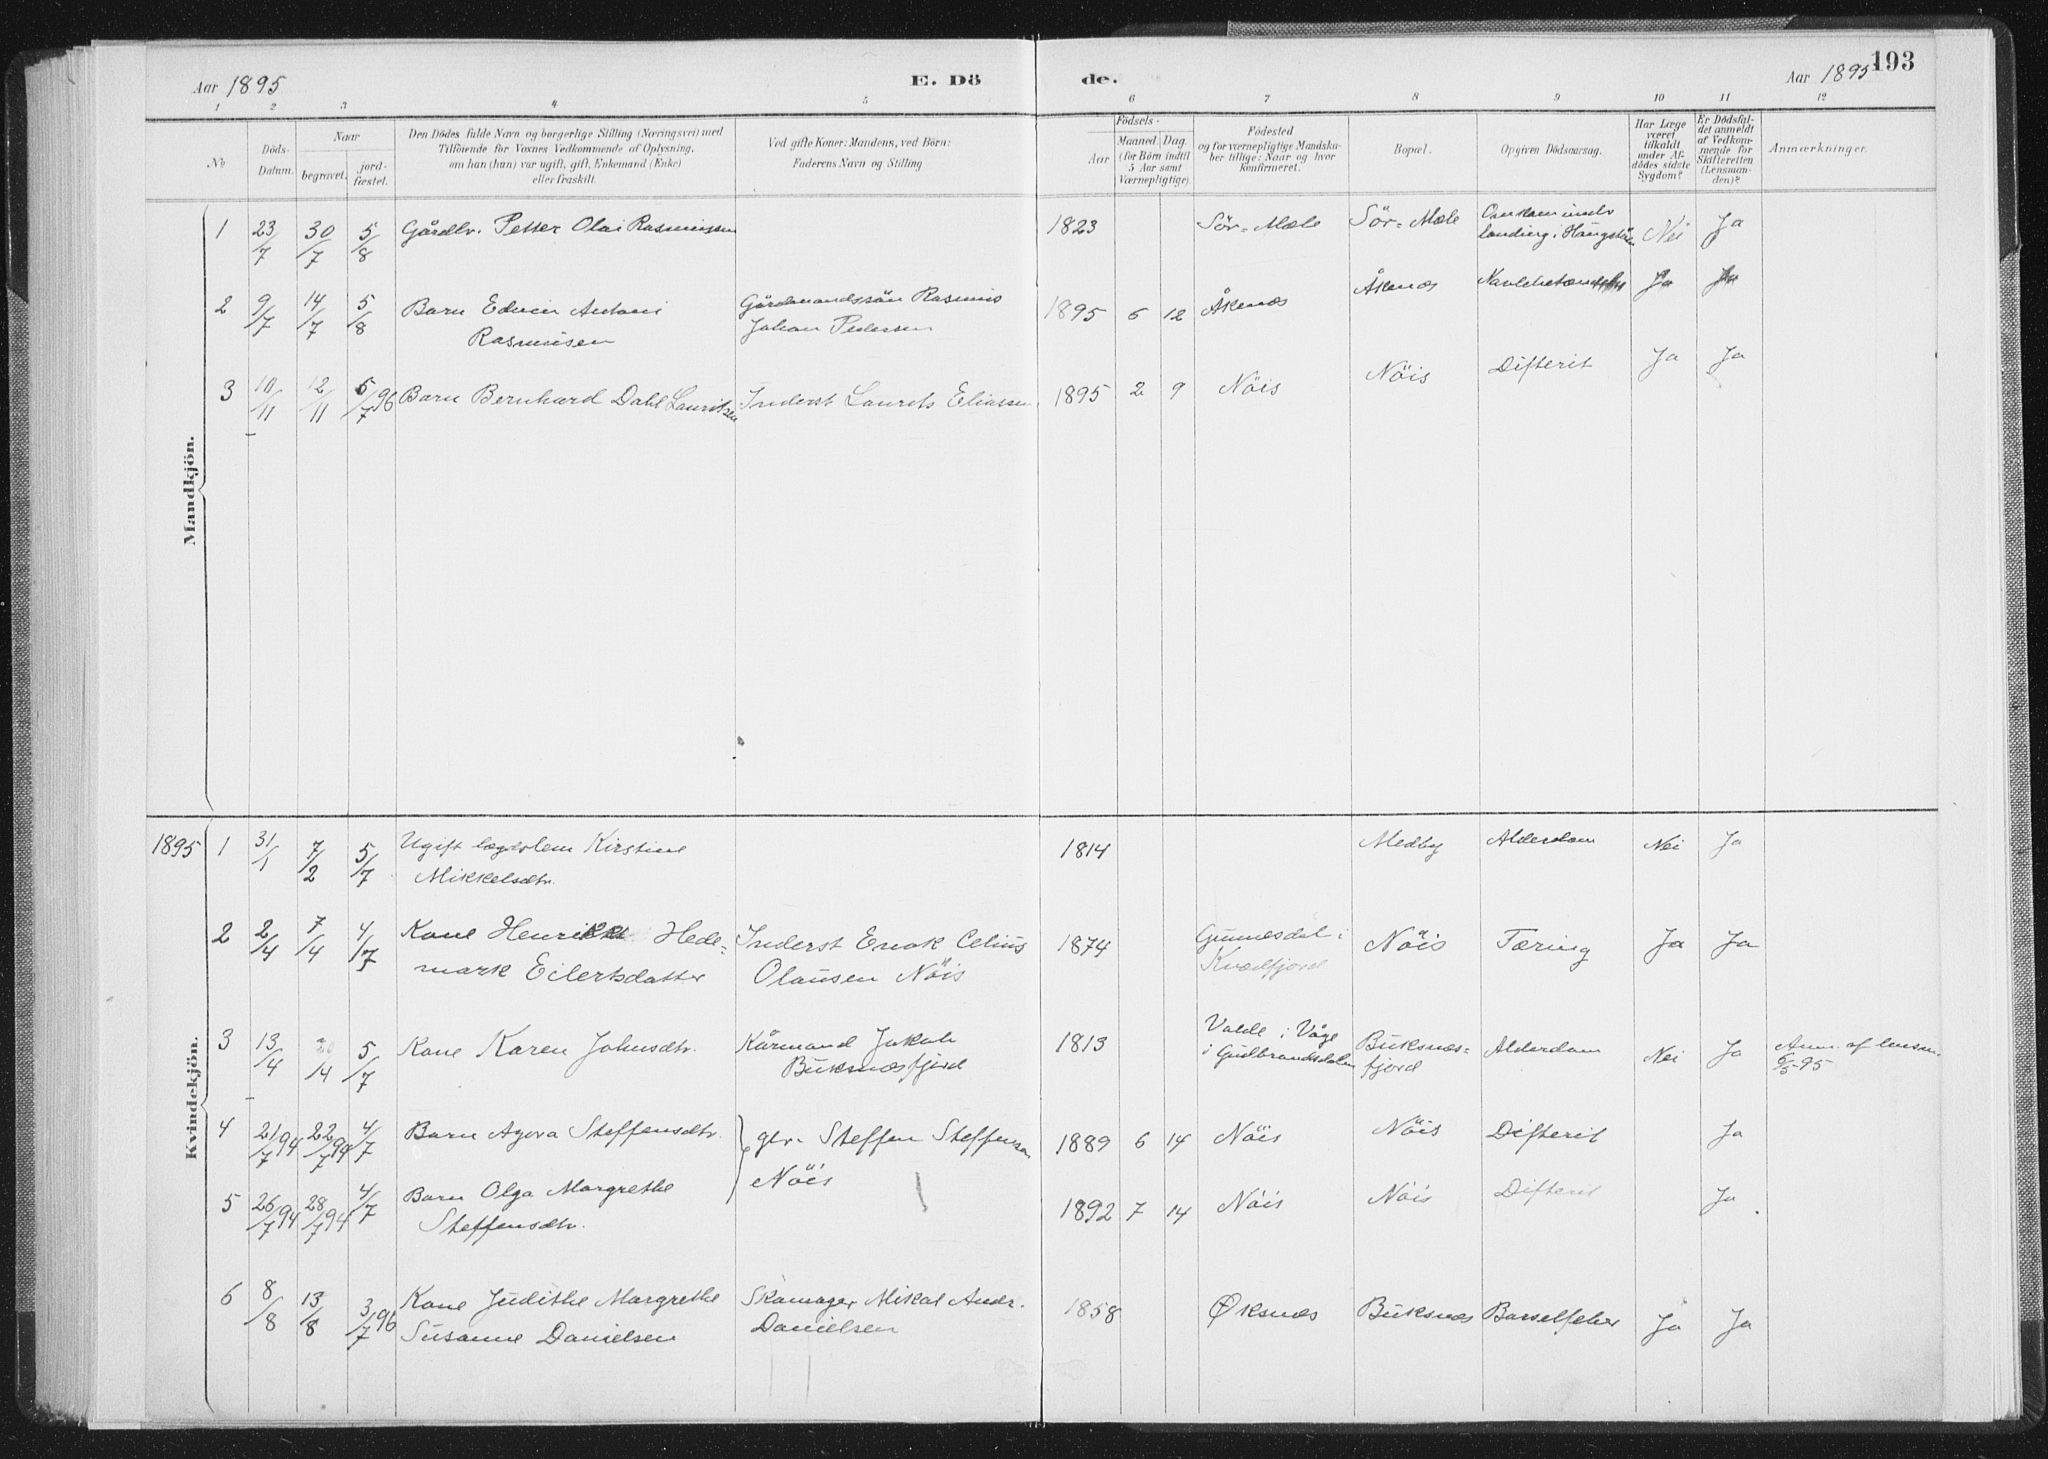 Aar 1895 E. Dö de. Aar 1895 193
1 2 3 4 5 6 7 8 9 10 11 12
No Döds-Datum. Naar begravet. jord-fæstet.
Den Dödes fulde Navn og borgerlige Stilling (Næringsvei) med
Tilföiende for Voxnes Vedkommende af Oplysning,
om han (hun) var ugift, gift, Enkemand (Enke)
eller fraskilt.
Ved gifte Koner: Mandens, ved Börn:
Faderens Navn og Stilling
Födsels-
Aar Maaned. Dag.
(for Börn indtil
5 Aar samt
Værnepligtige).
Födested
og for værnepligtige Mandska-
ber tillige: Naar og hvor
konfirmeret.
Bopæl.
Opgiven Dödsaarsag.
Har Læge
været
tilkaldt
under Af-
dödes sidste
Sygdom?
Er Dödsfal-
det anmeldt
af Vedkom-
mende for
Skifteretten
(Lensman-
den)?
Anmærkninger.
Mandkjön.
1 23/7 30/7 5/8 Gårdbr. Petter Olai Rasmussen 1823 Sör-Mæle Sör-Mæle Omkom under landing i Nei Ja
2 9/7 14/7 5/8 Barn Edvin Antoni Gårdmandssön Rasmus 1895 6 12 Åknæs Åknæs Ja Ja
Rasmusen Johan Pedersen
3 10/11 12/11 5/7 96 Barn Bernhard Dahl Lauritsen Inderst Laurits Eliassen 1895 2 9 Nöis Nöis Difterit Ja Ja
Kvindekjön.
1895 1 31/1 7/2 5/7 Ugift lægdslem Kirstine 1814 Medby Alderdom Nei Ja
Mikkelsdtr.
2 2/4 7/4 4/7 Kone Henrikke Hede- Inderst Enok Celius 1874 Gunnesdal i Nöis Tæring Ja Ja
mark Eilertsdatter Olausen Nöis Kvædfjord
3 13/4 20/4 5/7 Kone Karen Johnsdtr. Kårmand Jakob 1813 Valde i Våge Buksnæs- Alderdom Nei Ja Anm. af lensm.
Buksnæsfjord i Gudbrandsdalen fjord 6/5-95
4 21/7 94 22/7 94 4/7 Barn Agova Steffensdtr. gbr. Steffen Steffensen 1889 6 14 Nöis Nöis Difterit Ja
Nöis
5 26/7 94 28/7 94 4/7 Barn Olga Margrethe 1892 7 14 Nöis Nöis Difterit Ja
Steffensdtr.
6 8/8 13/8 3/7 96 Kone Judithe Margrethe Skomager Mikal Andr. 1858 Øksnæs Buksnæs Barselfeber Ja Ja
Susanne Danielsen Danielsen